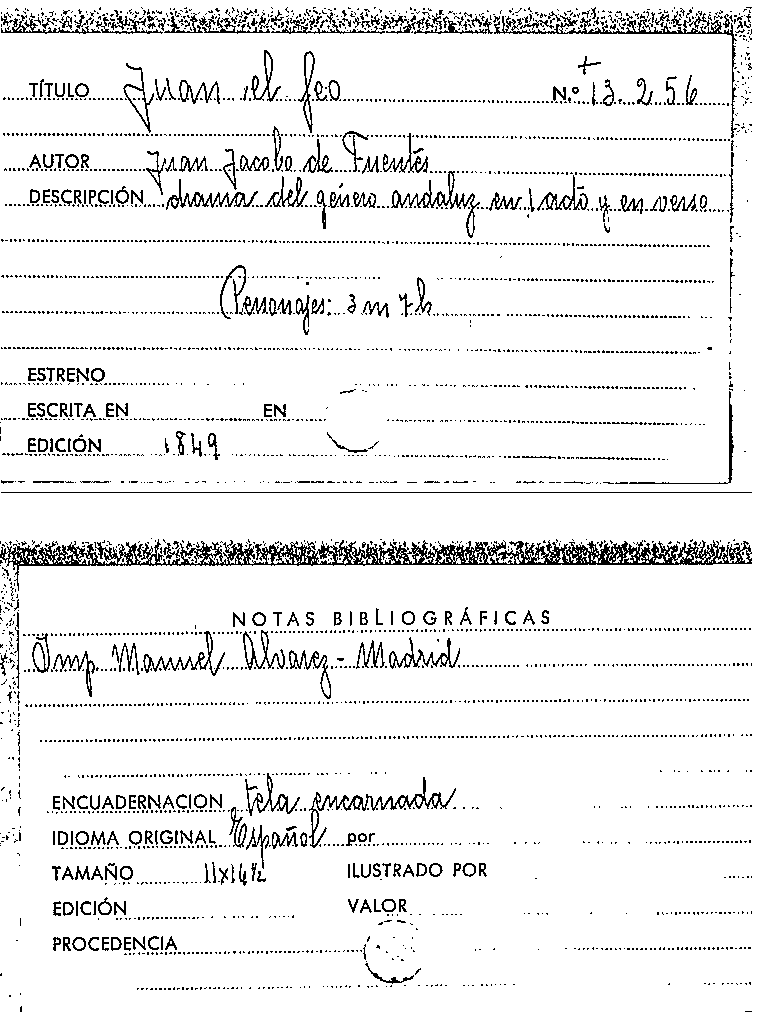 TÍTULO Juan el feo N.º + 13. 2. 56
AUTOR Juan Jacobo de Fuentes
DESCRIPCIÓN drama del género andaluz en 1 acto y en verso
Personajes: 3 m 7 h
ESTRENO
ESCRITA EN EN
EDICIÓN 1849
NOTAS BIBLIOGRÁFICAS
Imp Manuel Alvarez - Madrid
ENCUADERNACION tela encarnada
IDIOMA ORIGINAL Español por
TAMAÑO 11x16½ ILUSTRADO POR
EDICIÓN VALOR
PROCEDENCIA